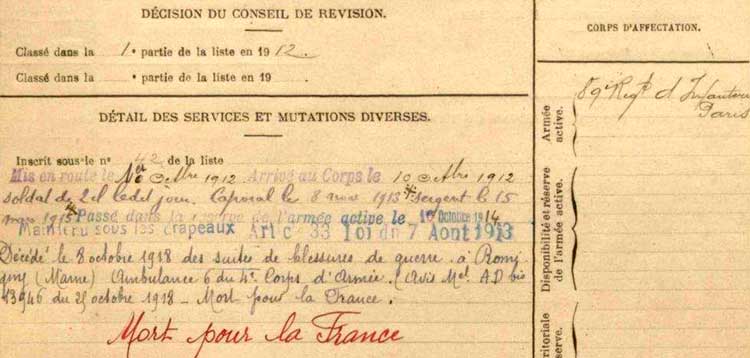 DÉCISION DU CONSEIL DE REVISION.
Classé dans la 1e partie de la liste en 1912.
Classé dans la e partie de la liste en 19
DÉTAIL DES SERVICES ET MUTATIONS DIVERSES.
Inscrit sous le no 42 de la liste
Mis en route le 1912 Arrivé au Corps le 10 8bre 1912
soldat de 2e cl ledit jour. Caporal le 8 mars 1913 sergent le 15
mars 1915 Passé dans la réserve de l'armée active le 1er Octobre 1914
Maintenu sous les drapeaux Artic 33 loi du 7 Août 1913
Décédé le 8 octobre 1918 des suites de blessures de guerre à Romi
gny (Marne) Ambulance 6 du 4e Corps d'Armée. (Avis Mel AD bis
13946 du 25 octobre 1918 - Mort pour la France.
Mort pour la France
CORPS D'AFFECTATION.
Armée active.
89e Regt d'Infanterie
Paris
Disponibilité et réserve de l'armée active.